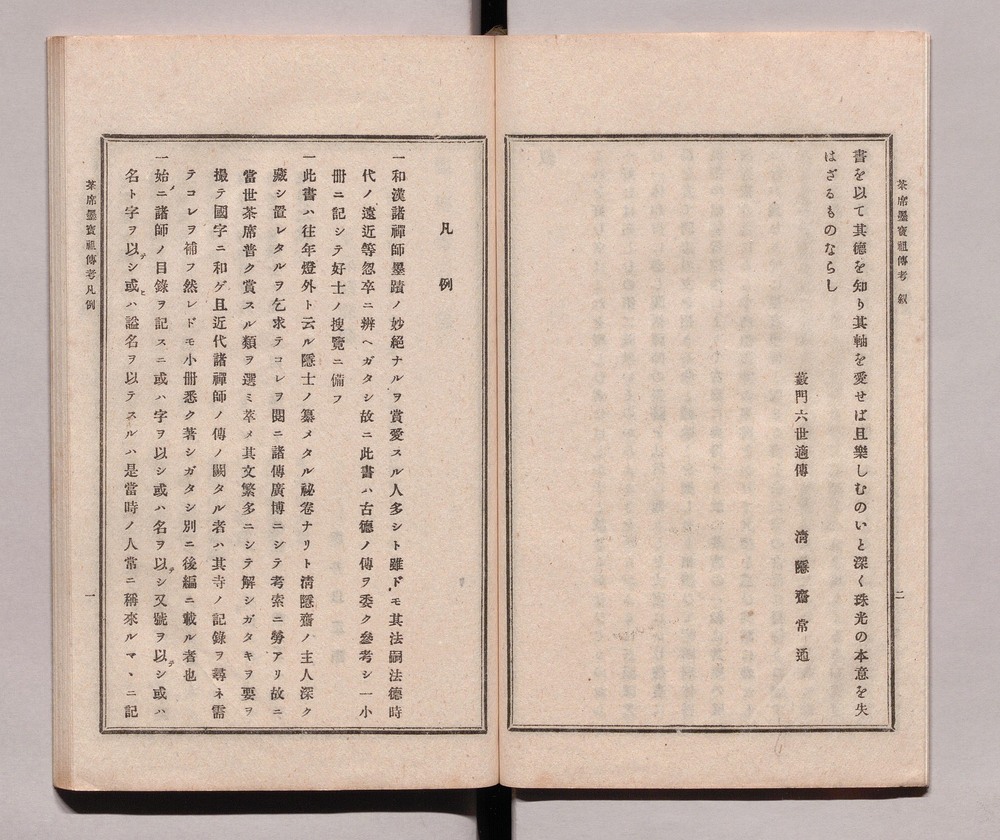 茶席墨寶祖傳考 叙
二
書を以て其德を知り其軸を愛せば且樂しむのいと深く珠光の本意を失
はざるものならし
藪門六世適傳 淸隱齋常通
凡例
一和漢諸禪師墨蹟ノ妙絕ナルヲ賞愛スル人多シト雖ドモ其法嗣法德時
代ノ遠近等忽卒ニ辨ヘガタシ故ニ此書ハ古德ノ傳ヲ委ク參考シ一小
冊ニ記シテ好士ノ搜覽ニ備フ
一此書ハ往年燈外ト云ル隱士ノ纂メタル祕卷ナリト淸隱齋ノ主人深ク
藏シ置レタルヲ乞求テコレヲ閱ニ諸傳廣博ニシテ考索ニ勞アリ故ニ
當世茶席普ク賞スル類ヲ選ミ萃メ其文繁多ニシテ解シガタキヲ要ヲ
撮テ國字ニ和ゲ且近代諸禪師ノ傳ノ闕タル者ハ其寺ノ記錄ヲ尋ネ需
テコレヲ補フ然レドモ小冊悉ク著シガタシ別ニ後編ニ載ル者也
一始メニ諸師ノ目錄ヲ記スニ或ハ字ヲ以シ或ハ名ヲ以テシ又號ヲ以テシ或ハ
名ト字ヲ以テシ或ヒハ諡名ヲ以テスルハ是當時ノ人常ニ稱來ルマヽニ記
茶席墨寶祖傳考凡例
一